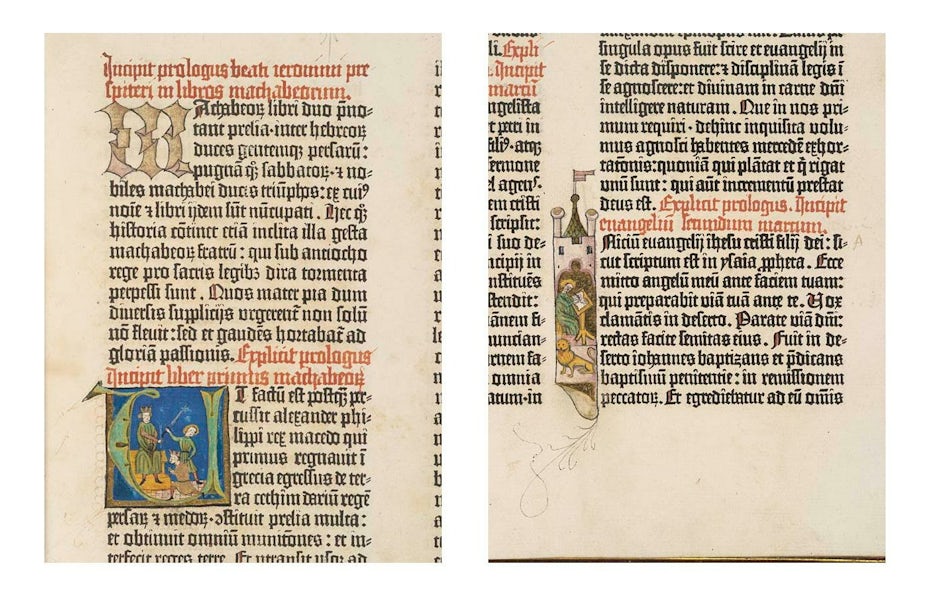 Incipit prologus beati ieronimi pre
sbiteri in libros machabeorum.
Machabeoꝝ libri duo p̄no-
tant prelia · inter hebreoꝝ
duces gentemqꝫ persarū :
pugnā qꝫ sabbatoꝝ · ⁊ no-
biles machabei ducis triūphos: ex cuiꝰ
noīe ⁊ libri ijdem sūt nūcupati . Hec qꝫ
historia cōtinet etiā inclita illa gesta
machabeoꝝ fratrū : qui sub antiocho
rege pro sacris legibꝫ dira tormenta
perpessi sunt . Quos mater pia dum
diuersis supplicijs urgerent non solū
nō fleuit : sed et gaudēs hortabat᷑ ad
gloriā passionis. Explicit prologus
Incipit liber primus machabeoꝝ
Et factū est postqꝫ per-
cussit alexander phi-
lippi rex macedo qui
primus regnauit ī
grecia egressus de ter-
ra cethim dariū regē
persaꝝ ⁊ medoꝝ · ꝯstituit prelia multa :
et obtinuit omniū munitōnes : et in-
terfecit reges terre. Et ptransijt usqꝫ ad
li. Expli
Incipit
marcū
ngelista
filiꝰ. atqꝫ
sermone
scripsit:
suo de-
ncipij in
nstituēs
stendit:
nuncian-
omnia
singula opus fuit scire et euangelij in
se dicta disponere: ⁊ disciplinā legis ī
se agnoscere: et diuinam in carne dn̄i
intelligere naturam . Que in nos pri-
mum requiri · dehinc inquisita volu-
mus agnosci habentes mercedē exhor-
tatōnis: quoniā qui plātat et q̄ rigat
vnū sunt : qui aūt incrementū prestat
deus est. Explicit prologus. Incipit
euangeliū secundum marcum.
Iniciū euangelij ihesu cristi filij dei : si-
cut scriptum est in ysaia ꝓpheta. Ecce
mitto angelū meū ante faciem tuam:
qui preparabit viā tuā ante te. Vox
clamātis in deserto. Parate viā dn̄i:
rectas facite semitas eius. Fuit in de-
serto iohannes baptizans et p̄dicans
baptismū penitentie : in remissionem
peccatoꝝ. Et egrediebatur ad eū om̄is